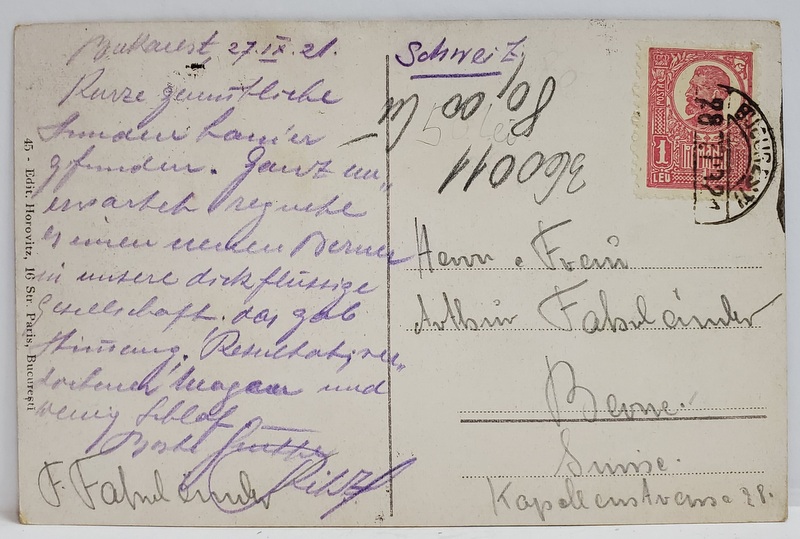 Bukarest, 27.IX.21.
Kurze gemütliche
Stunden
gfunden. Ganz un„
erwartet regnete
es einen neuen Berner
in unsere dickflüssige
Gesellschaft. das gab
Stimmung. Resultat: ver„
dorbener Magen und
wenig Schlaf
Beste Grüsse
F. Fabeländer
45 - Edit. Horovitz, 16 Str. Paris, Bucureşti
Schweiz
80,00 lei
50 lei
360011
POSTA
1
LEU
BUCUREŞTI
Herrn & Frau
Arthur Fabeländer
Berne.
Suisse.
Kapellenstrasse 28.